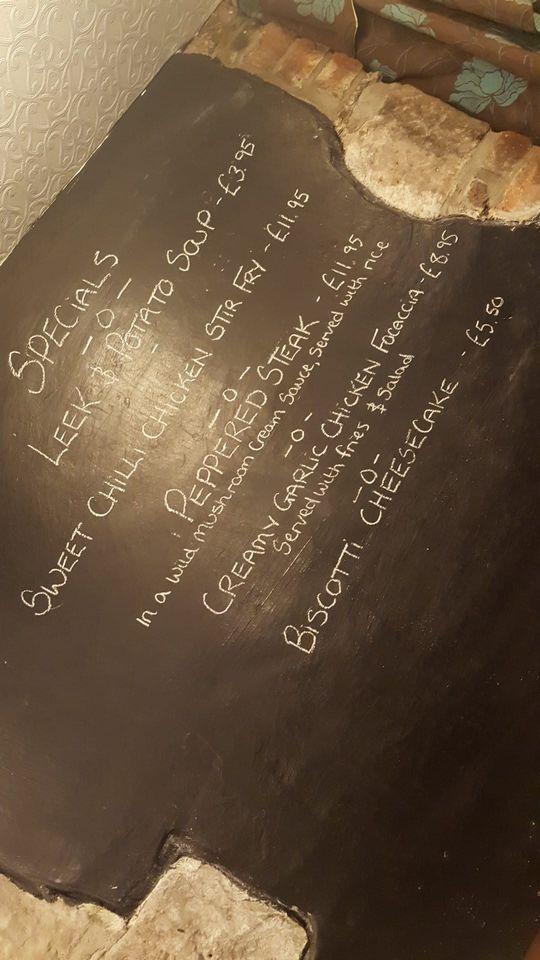 SPECIALS
- O -
LEEK & POTATO SOUP - £3.95
-
SWEET CHILLI CHICKEN STIR FRY - £11.95
- O -
PEPPERED STEAK - £11.95
In a wild mushroom cream sauce, served with rice
- O -
CREAMY GARLIC CHICKEN FOCACCIA - £8.95
Served with fries & salad
- O -
BISCOTTI CHEESECAKE - £5.50